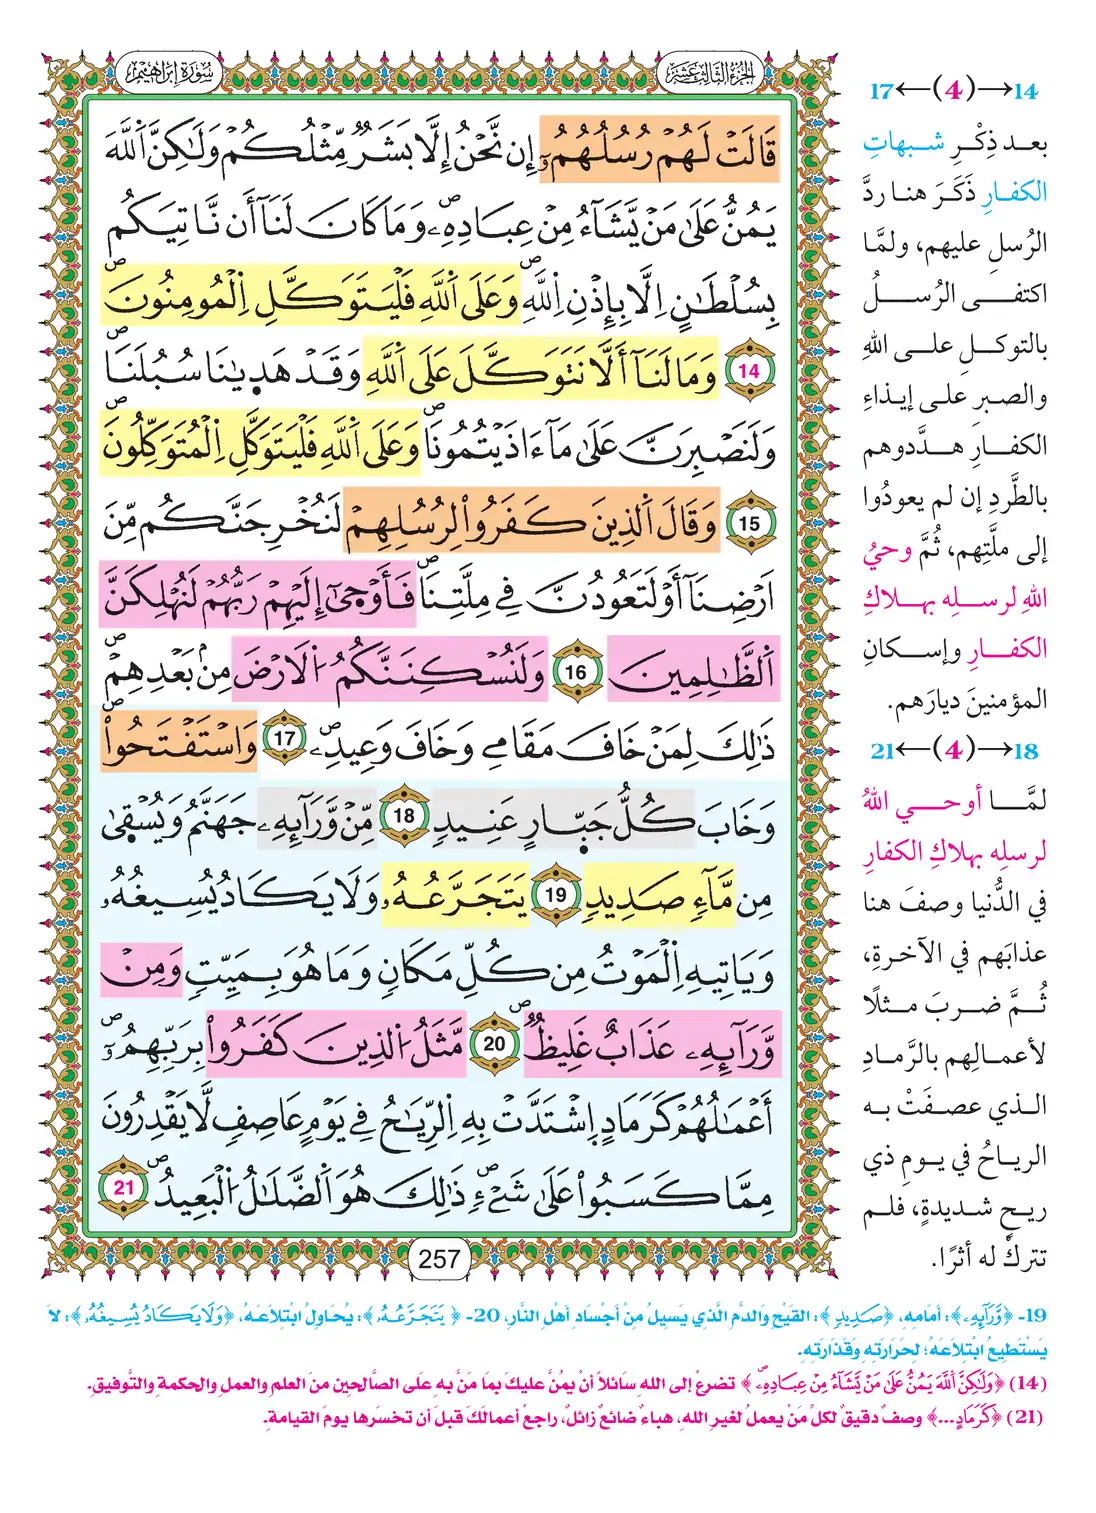 سُورَةُ إِبْرَاهِيم
الجُزْءُ الثَّالِثَ عَشَرَ
قَالَتْ لَهُمْ رُسُلُهُمُۥٓ إِن نَّحْنُ إِلَّا بَشَرٌ مِّثْلُكُمْ وَلَٰكِنَّ اَ۬للَّهَ
يَمُنُّ عَلَىٰ مَنْ يَّشَآءُ مِنْ عِبَادِهِۦۖ وَمَا كَانَ لَنَآ أَن نَّاتِيَكُم
بِسُلْطَٰنٍ اِلَّا بِإِذْنِ اِ۬للَّهِۖ وَعَلَى اَ۬للَّهِ فَلْيَتَوَكَّلِ اِ۬لْمُومِنُونَۖ
14 وَمَا لَنَآ أَلَّا نَتَوَكَّلَ عَلَى اَ۬للَّهِ وَقَدْ هَد۪يٰنَا سُبُلَنَاۖ
وَلَنَصْبِرَنَّ عَلَىٰ مَآ ءَاذَيْتُمُونَاۖ وَعَلَى اَ۬للَّهِ فَلْيَتَوَكَّلِ اِ۬لْمُتَوَكِّلُونَۖ
15 وَقَالَ اَ۬لذِينَ كَفَرُواْ لِرُسُلِهِمْ لَنُخْرِجَنَّكُم مِّنَ
اَرْضِنَآ أَوْ لَتَعُودُنَّ فِي مِلَّتِنَاۖ فَأَوْح۪يٰٓ إِلَيْهِمْ رَبُّهُمْ لَنُهْلِكَنَّ
اَ۬لظَّٰلِمِينَ 16 وَلَنُسْكِنَنَّكُمُ اُ۬لَارْضَ مِنۢ بَعْدِهِمْۖ
ذَٰلِكَ لِمَنْ خَافَ مَقَامِي وَخَافَ وَعِيدِۦۖ 17 وَاسْتَفْتَحُواْۖ
وَخَابَ كُلُّ جَبّ۪ارٍ عَنِيدٍ 18 مِّنْ وَّرَآئِهِۦ جَهَنَّمُ وَيُسْقَىٰ
مِن مَّآءٍ صَدِيدٍ 19 يَتَجَرَّعُهُۥ وَلَا يَكَادُ يُسِيغُهُۥ
وَيَاتِيهِ اِ۬لْمَوْتُ مِن كُلِّ مَكَانٍ وَمَا هُوَ بِمَيِّتٍ وَمِنْ
وَّرَآئِهِۦ عَذَابٌ غَلِيظٌۖ 20 مَّثَلُ اُ۬لذِينَ كَفَرُواْ بِرَبِّهِمُۥٓۖ
أَعْمَٰلُهُمْ كَرَمَادٍ اِ۪شْتَدَّتْ بِهِ اِ۬لرِّيَٰحُ فِي يَوْمٍ عَاصِفٍ لَّا يَقْدِرُونَ
مِمَّا كَسَبُواْ عَلَىٰ شَيْءٍۖ ذَٰلِكَ هُوَ اَ۬لضَّلَٰلُ اُ۬لْبَعِيدُۖ 21
257
14→(4)←17
بعد ذِكْرِ شبهاتِ
الكفارِ ذَكَرَ هنا ردَّ
الرُسلِ عليهم، ولمَّا
اكتفى الرُسلُ
بالتوكلِ على اللهِ
والصبرِ على إيذاءِ
الكفارِ هدَّدوهم
بالطَّردِ إن لم يعودُوا
إلى ملَّتِهم، ثُمَّ وحيُ
اللهِ لرسلِه بهلاكِ
الكفارِ وإسكانِ
المؤمنينَ ديارَهم.
18→(4)←21
لمَّا أوحى اللهُ
لرسلِه بهلاكِ الكفارِ
في الدُّنيا وصفَ هنا
عذابَهم في الآخرةِ،
ثُمَّ ضربَ مثلًا
لأعمالِهم بالرَّمادِ
الذي عصفَتْ به
الرياحُ في يومِ ذي
ريحٍ شديدةٍ، فلم
تتركْ له أثرًا.
19- ﴿وَّرَآئِهِۦ﴾: أمَامِهِ، ﴿صَدِيدٍ﴾: القَيْحِ وَالدَّمِ الَّذِي يَسِيلُ مِنْ أجْسَادِ أهْلِ النَّارِ، 20- ﴿يَتَجَرَّعُهُۥ﴾: يُحَاوِلُ ابْتِلَاعَهُ، ﴿وَلَا يَكَادُ يُسِيغُهُۥ﴾: لَا
يَسْتَطِيعُ ابْتِلَاعَهُ؛ لِحَرَارَتِهِ وَقَذَارَتِهِ.
(14) ﴿وَلَٰكِنَّ اَ۬للَّهَ يَمُنُّ عَلَىٰ مَنْ يَّشَآءُ مِنْ عِبَادِهِۦۖ﴾ تضرعْ إلى اللهِ سَائلاً أنْ يمُنَّ عليكَ بمَا مَنَّ بهِ عَلى الصَّالحِينَ منَ العلمِ والعملِ والحكمةِ والتَّوفيقِ.
(21) ﴿كَرَمَادٍ...﴾ وصفٌ دقيقٌ لكلِّ مَنْ يعملُ لغيرِ اللهِ، هباءٌ ضائعٌ زائلٌ، راجعْ أعمالَكَ قبلَ أن تخسَرها يومَ القيامةِ.